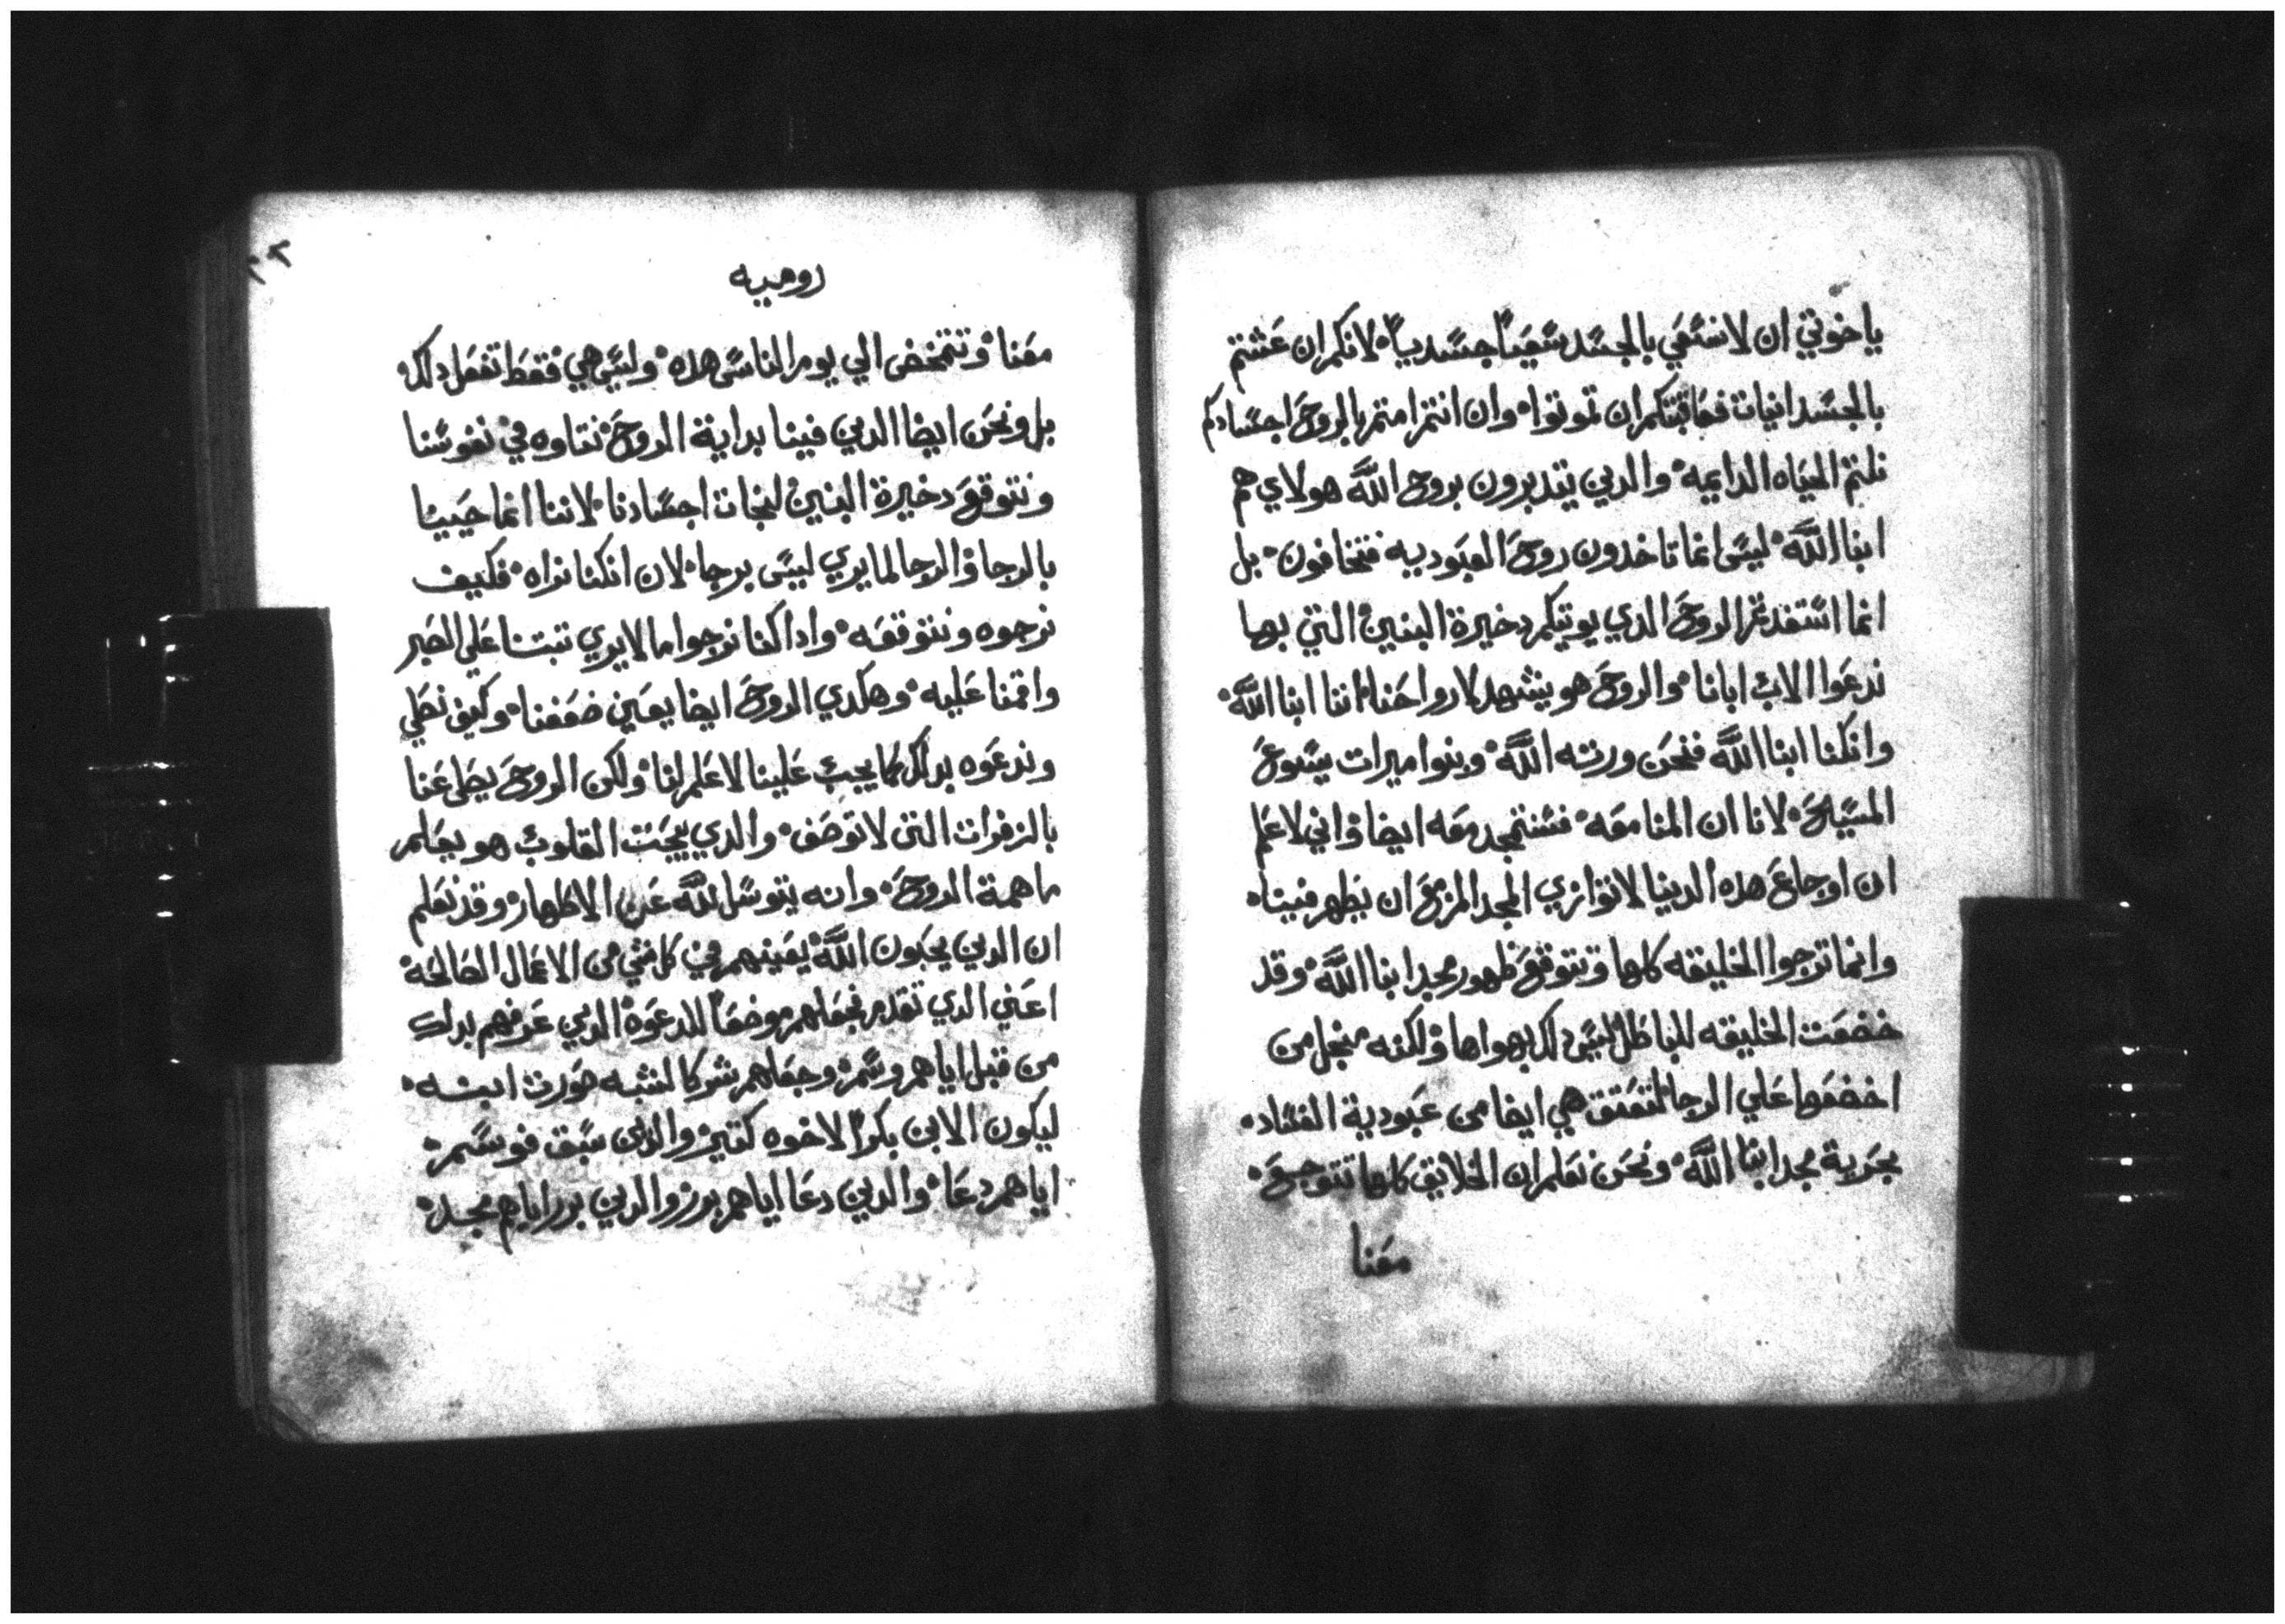 ياخوتي ان لانسعي بالجسد سعياً جسدياً لانكم ان عشتم
بالجسدانيات فعاقبتكم ان تموتوا وان انتم امتم بالروح اجسادكم
نلتم الحياه الدايمه والدين يتدبرون بروح الله هولاي هم
ابنا الله ليس انما تاخدون روح العبوديه فتخافون بل
انما استفدتم الروح الدي يوتيكم دخيرة البنين التي بها
ندعوا الاب ابانا والروح هو يشهد لارواحنا اننا ابنا الله
وانكنا ابنا الله فنحن ورثه الله وبنوا ميرات يسوع
المسيح لانا ان المنا معه فسنتمجد معه ايضا واني لاعلم
ان اوجاع هده الدنيا لاتوازي المجد المزمع ان يظهر فينا
وانما ترجوا الخليقه كلها وتتوقع ظهور مجد ابنا الله وقد
خضعت الخليقه للباطل ليس دلك بهواها ولكنه من اجل من
اخضعها علي الرجا لتعتق هي ايضا من عبودية الفساد
بحرية مجد ابنا الله ونحن نعلم ان الخلايق كلها تتوجع
معنا
روميه
معنا وتتمخض الي يومر الناس هده وليس هي فقط تفعل دلك
بل ونحن ايضا الدين فينا بداية الروح نتاوه في نفوسنا
ونتوقع دخيرة البنين لنجات اجسادنا لاننا انما حيينا
بالرجا والرجا لما يري ليس برجا لان انكنا نراه فكيف
نرجوه ونتوقعه وادا كنا نرجوا ما لايري تبتنا علي الصبر
واقمنا عليه وهكدي الروح ايضا يعين ضعفنا وكيف نصلي
وندعوه بدلك كما يجب علينا لاعلم لنا ولكن الروح يصلي عنا
بالزفرات التى لاتوصف والدي يبحت القلوب هو يعلم
ما همة الروح وانه يتوسل لله عن الاطهار وقد نعلم
ان الدين يحبون الله يعينهم في كل شي من الاعمال الصالحة
اعني الدي تقدم فجعلهم موضعاً للدعوة الدين عرفهم بدلك
من قبل اياهم وسم وجعلهم شركا لشبه صورت ابنه
ليكون الابن بكراً لاخوه كتير والدين سبق فوسم
اياهم دعا والدين دعا اياهم برر والدين برر اياهم مجد